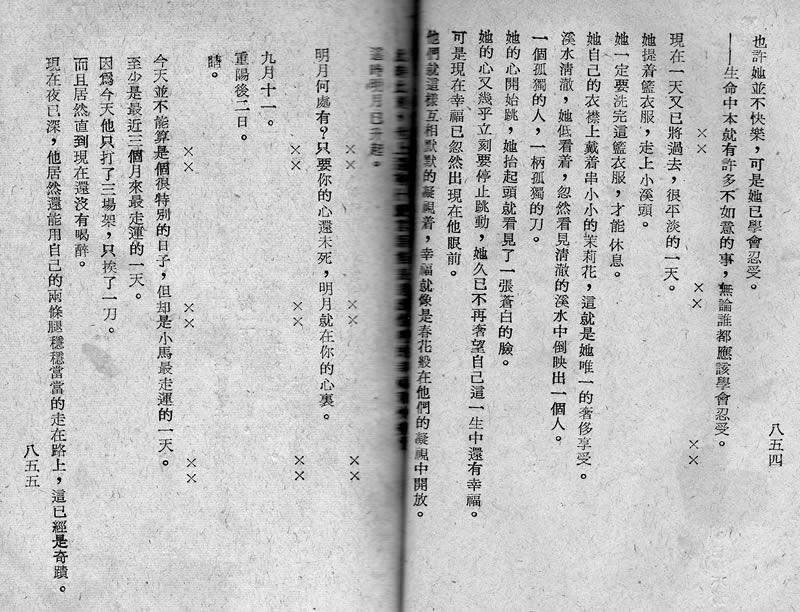 也許她並不快樂，可是她已學會忍受。
——生命中本就有許多不如意的事，無論誰都應該學會忍受。
×× ×× ××
現在一天又已將過去，很平淡的一天。
她提着籃衣服，走上小溪頭。
她一定要洗完這籃衣服，才能休息。
她自己的衣襟上戴着串小小的茉莉花，這就是她唯一的奢侈享受。
溪水清澈，她低看着，忽然看見清澈的溪水中倒映出一個人。
一個孤獨的人，一柄孤獨的刀。
她的心開始跳，她抬起頭就看見了一張蒼白的臉。
她的心又幾乎立刻要停止跳動，她久已不再奢望自己這一生中還有幸福。
可是現在幸福已忽然出現在他眼前。
他們就這樣互相默默的凝視着，幸福就像是春花般在他們的凝視中開放。
八五四
這時明月已升起。
×× ×× ××
明月何處有？只要你的心還未死，明月就在你的心裏。
×× ×× ××
九月十一。
重陽後二日。
晴。
×× ×× ××
今天並不能算是個很特別的日子，但却是小馬最走運的一天。
至少是最近三個月來最走運的一天。
因爲今天他只打了三場架，只挨了一刀。
而且居然直到現在還沒有喝醉。
現在夜已深，他居然還能用自己的兩條腿穩穩當當的走在路上，這已經是奇蹟。
八五五